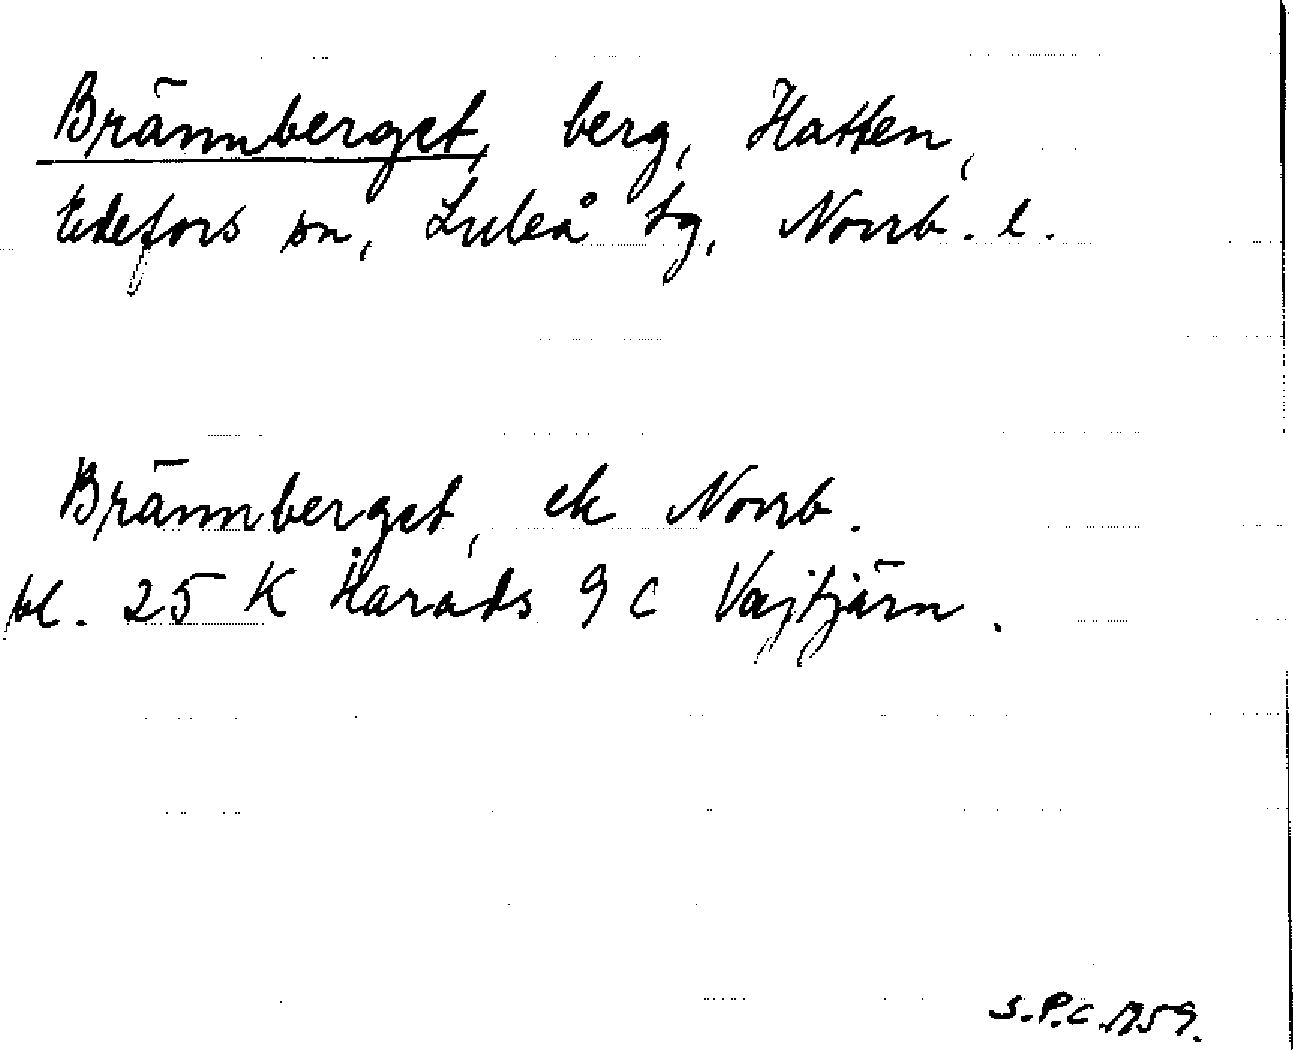 Brännberget, berg, Hatten,
Edefors sn, Luleå tg, Norrb. l.
Brännberget, ek Norrb.
bl. 25 K Harads 9 c Vajtjärn.
S.P.C. 1959.